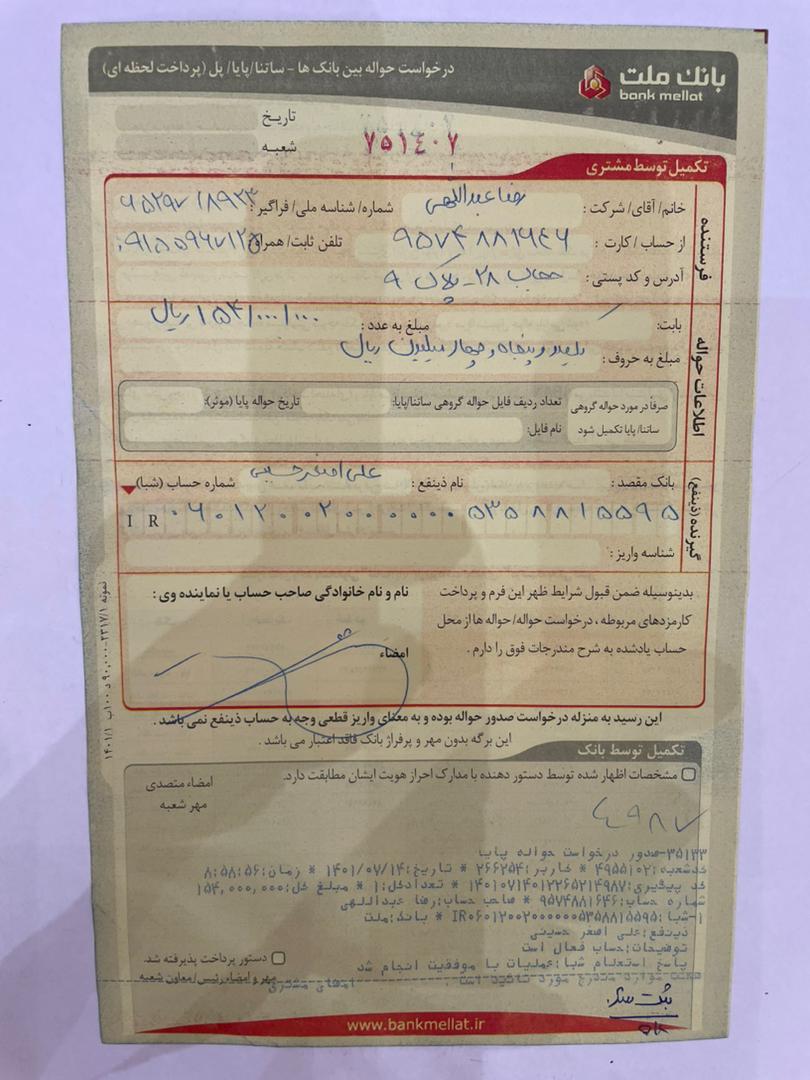 بانک ملت
bank mellat
درخواست حواله بین بانک ها - ساتنا/پایا/پل (پرداخت لحظه ای)
تاریخ
شعبه
۷۵۱۴۰۷
تکمیل توسط مشتری
فرستنده
خانم/آقای/شرکت: رضا عبداللهی شماره/شناسه ملی/فراگیر:
از حساب/کارت: ۹۵۷۴۸۸۱۶۴۶ تلفن ثابت/همراه:
آدرس و کد پستی: حجاب ۲۸ - پلاک ۹
اطلاعات حواله
بابت: مبلغ به عدد: ۱۵۴/۰۰۰/۰۰۰ ریال
مبلغ به حروف: یکصد و پنجاه و چهار میلیون ریال
صرفاً در مورد حواله گروهی ساتنا/پایا تکمیل شود
تعداد ردیف فایل حواله گروهی ساتنا/پایا: تاریخ حواله پایا (موثر):
نام فایل:
گیرنده (ذینفع)
بانک مقصد: نام ذینفع: علی اصغر حسینی شماره حساب (شبا)
IR ۰۶۰۱۲۰۰۲۰۰۰۰۰۰۵۳۵۸۸۱۵۵۹۵
شناسه واریز:
بدینوسیله ضمن قبول شرایط ظهر این فرم و پرداخت
کارمزدهای مربوطه، درخواست حواله/حواله ها از محل
حساب یادشده به شرح مندرجات فوق را دارم.
نام و نام خانوادگی صاحب حساب یا نماینده وی:
امضاء
این رسید به منزله درخواست صدور حواله بوده و به معنای واریز قطعی وجه به حساب ذینفع نمی باشد.
این برگه بدون مهر و پرفراژ بانک فاقد اعتبار می باشد.
تکمیل توسط بانک
مشخصات اظهار شده توسط دستور دهنده با مدارک احراز هویت ایشان مطابقت دارد.
امضاء متصدی
مهر شعبه
۴۹۸۷
۳۵۱۳۳-صدور درخواست حواله پایا
کدشعبه:۴۹۵۵۱۰۲ * کاربر:۲۶۶۲۵۴ * تاریخ:۱۴۰۱/۰۷/۱۴ * زمان:۸:۵۸:۵۶
کد پیگیری:۱۴۰۱۰۷۱۴۰۱۲۲۶۵۲۱۴۹۸۷ * تعدادکل:۱ * مبلغ کل:۱۵۴,۰۰۰,۰۰۰
شماره حساب:۹۵۷۴۸۸۱۶۴۶ * صاحب حساب:رضا عبداللهی
۱-شبا:IR۰۶۰۱۲۰۰۲۰۰۰۰۰۰۵۳۵۸۸۱۵۵۹۵ * بانک:ملت
ذینفع:علی اصغر حسینی
توضیحات:حساب فعال است
پاسخ استعلام شبا:عملیات با موفقیت انجام شد
صحت موارد مندرج مورد تائید است. امضای مشتری
دستور پرداخت پذیرفته شد.
مهر و امضاء رئیس/معاون شعبه
ثبت شد
www.bankmellat.ir